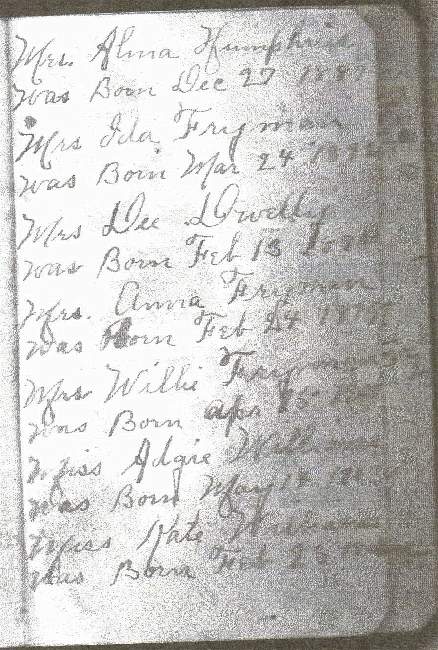 Mrs. Alma Humphries
was Born Dec 27 1887
Mrs Ida Fryman
was Born Mar 24
Mrs Dee
was Born Feb 13
Mrs. Anna Fryman
was Born Feb 24
Mrs Willie Fryman
was Born apr 15
Miss Adgie Williams
was Born May 14
Miss Kate Williams
was Born Feb 25